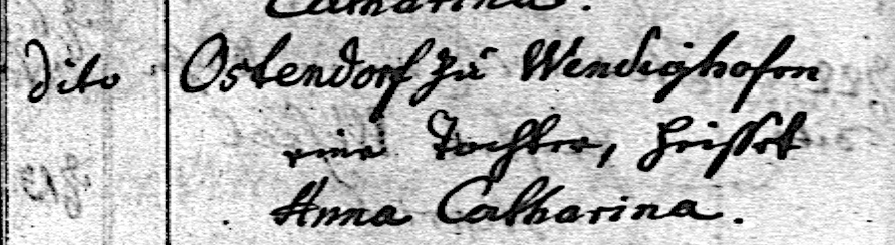 Catharina.
dito Ostendorf zu Wendighofen
eine Tochter, heisset
Anna Catharina.